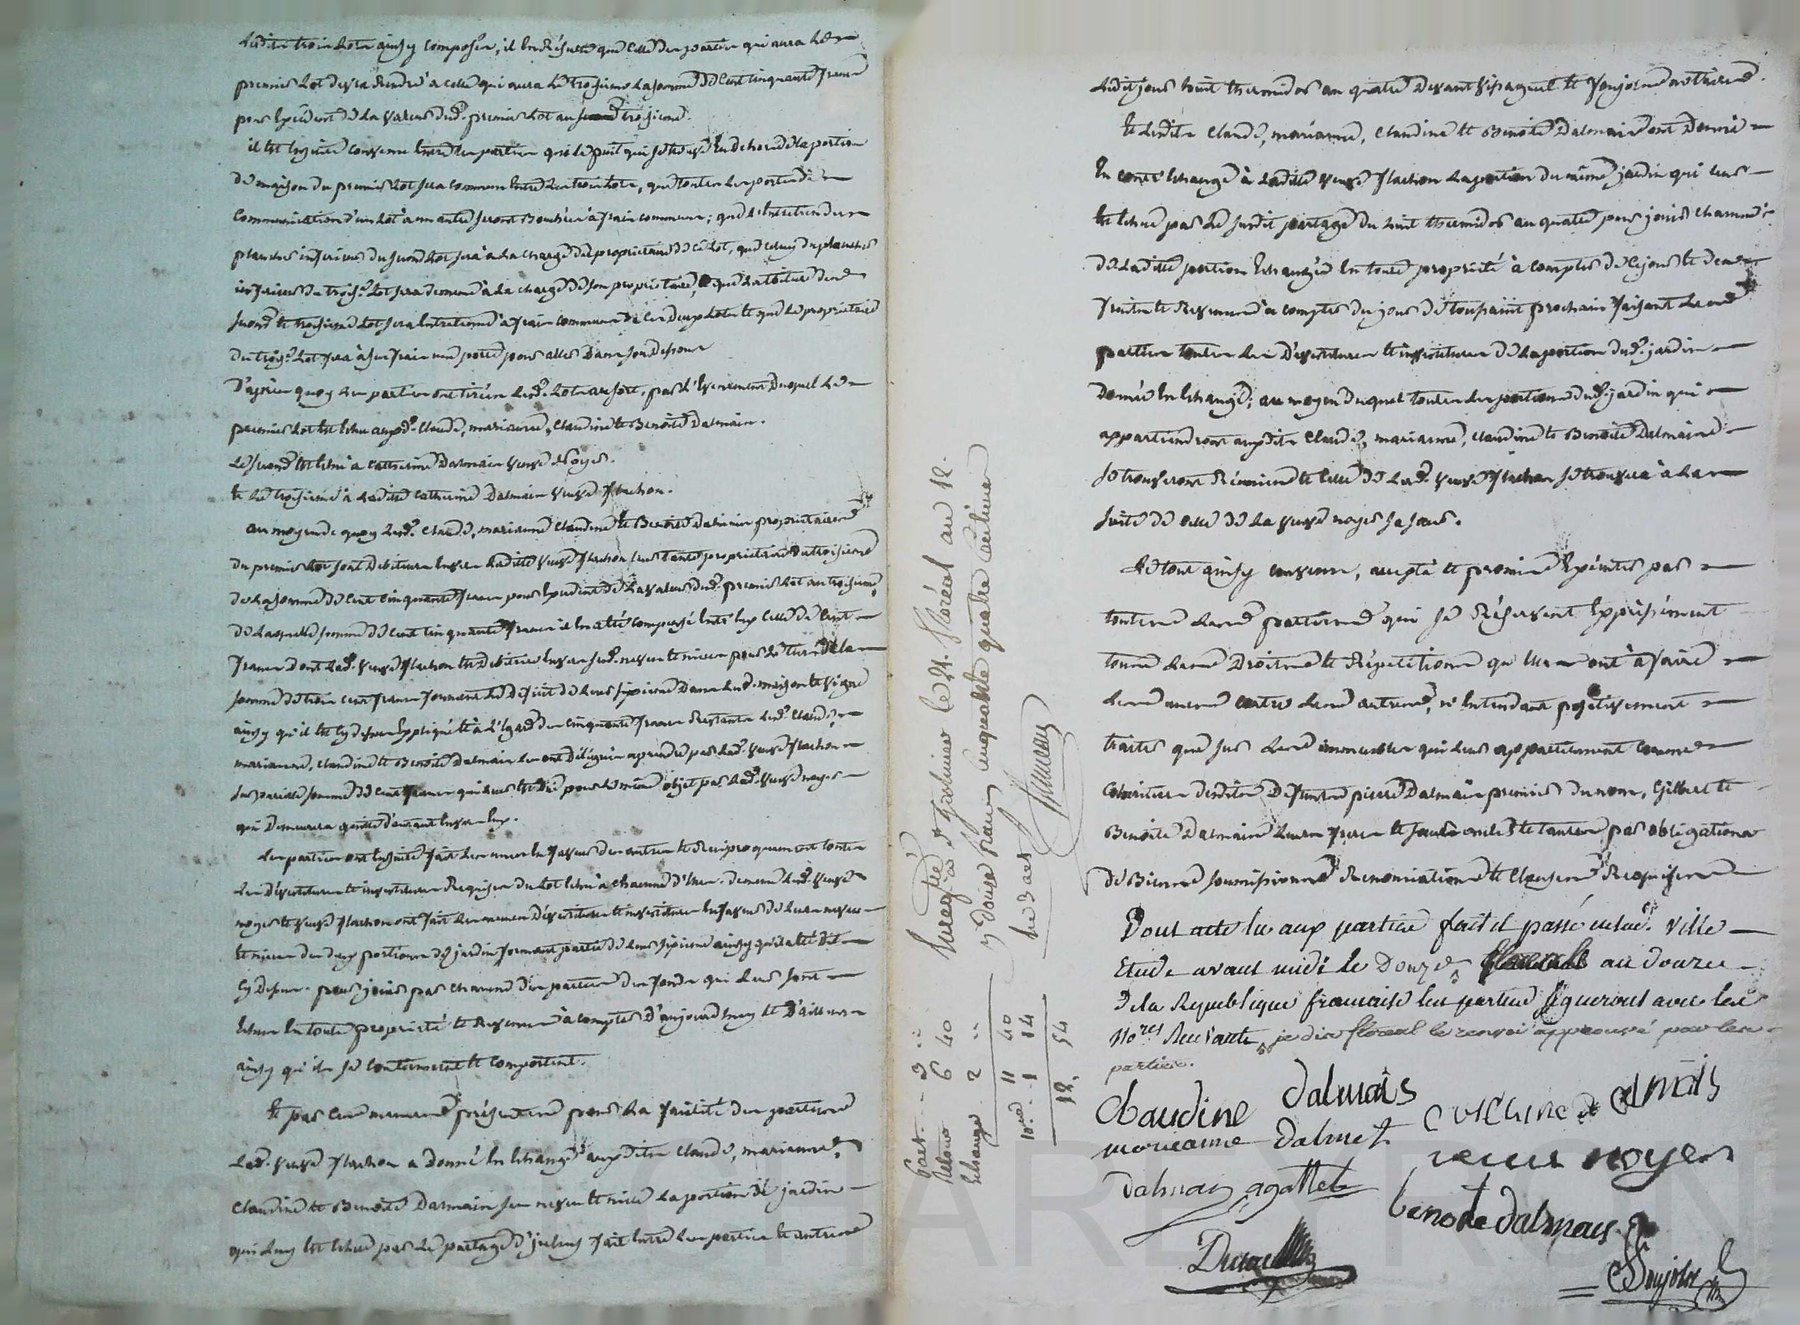 Lesdits trois lots ainsy composés, il en résulte que celle des parties qui aura le
premier lot devra rendre à celle qui aura le troisieme la somme de cent cinquante francs
pour l'excédent de la valeur dud. premier lot au troisieme.
il est toujours convenu entre les parties que le puit qui se trouve en dehors de la portion
de maison du premier lot sera commun entre les trois lots, que toutes les portes de
communication d'un lot à un autre seront bouchées à frais communs; que l'entretien du
plancher inférieur du second lot sera à la charge du propriétaire de ce lot, que celuy du plancher
inférieur du trois.e lot sera de même à la charge de son propriétaire, que la toiture des
second et troisieme lot sera entretenue à frais communs de ces deux lots et que le propriétaire
du trois.e lot fera à ses frais une porte pour aller dans son dessous
D'après quoy les parties ont tiré les d. lots au sort, par l'evenement duquel le
premier lot est échu auxd. Claude, marianne, Claudine et Benoite Dalmais.
Le second est échu à Catherine Dalmais veuve Noyer.
et le troisieme à ladite Catherine Dalmais veuve flachon.
au moyen de quoy lesd. Claude, marianne Claudine et Benoite Dalmais propriétaires
du premier lot sont debiteurs envers ladite veuve flachon leur tante propriétaire du troisieme
de la somme de cent cinquante francs pour l'excédent de la valeur dud. premier lot au troisieme,
de laquelle somme de cent cinquante francs il en a été compensé entre eux celle de cent
francs dont lad. veuve flachon est debitrice envers sesd. neveu et nieces pour le tiers de la
somme de trois cent francs formant le deficit de leur sixieme dans lesd. maison et vigne
ainsy qu'il est cy devant expliqué et à l'égard des cinquante francs restants lesd. Claude,
marianne, Claudine et Benoite Dalmais les ont délégués à prendre par lad. veuve flachon
sur pareille somme de cent francs qui leur est due pour le même objet par lad. veuve noyer
qui demeurera quitte d'autant envers eux.
Les parties ont ensuite fait les unes en faveur des autres et reciproquement toutes
les dévestitures et investitures requises du lot échu à chacune d'elles. de même lesd. veuve
noyer et veuve flachon ont fait les mêmes dévestitures et investitures en faveur de leurs neveu
et nieces des deux portions de jardin formant partie de leur sixieme ainsy qu'il a été dit
cy dessus. pour jouir par chacune des parties des fonds qui leur sont
échus en toute propriété et revenus à compter d'aujourd'huy et d'ailleurs
ainsy qu'ils se contiennent et comportent.
et par ces mêmes présentes pour la facilité des parties
lad. veuve flachon a donné en échange auxdits Claude, marianne,
Claudine et Benoite Dalmais ses neveu et nieces la portion de jardin
qui luy est échue par le partage d'iceluy fait entre les parties et autres
ledit jour huit thermidor an quatre devant ... et Soujolon notaires.
et lesdits Claude, marianne, Claudine et Benoite Dalmais ont donné
en contre échange à ladite veuve flachon la portion du même jardin qui leur
est échue par le susdit partage du huit thermidor an quatre pour jouir chacun
de ladite portion échangée en toute propriété à compter de ce jour et des
fruits et revenus à compter du jour de toussaint prochain faisant les
parties toutes les dévestitures et investitures de la portion dud. jardin
donnée en échange; au moyen duquel toutes les portions dud. jardin qui
appartiendront auxdits Claude, marianne, Claudine et Benoite Dalmais
se trouveront réunies et celle de lad. veuve flachon se trouvera à la
suite de celle de la veuve noyer sa sœur.
Le tout ainsy convenu, accepté et promis exécuter par
toutes les parties qui se réservent expressément
tous les droits et répétitions qu'elles ont à faire
les unes contre les autres, n'entendant positivement
traiter que sur les immeubles qui leur appartiennent comme
cohéritiers desdits défunts pierre Dalmais premier du nom, Gilbert et
Benoite Dalmais leurs frere et sœur oncle et tantes par obligations
de biens soumissions renonciations et clauses requises
Dont acte lu aux parties fait et passé aud. Ville
Etude avant midi le Douze au douze
de la Republique francaise les parties signeront avec les
No.res Recevants, je dis floreal le renvoi approuvé par les
parties.
Claudine Dalmais Catherine Dalmais
marianne dalmet veuve noyer
dalmais agattet
benoite dalmais
Soujolon
Enregistré à le 24. floréal an 12.
quatre centimes
Part. 3 "
Retour 6 40
Echange 2 "
11 40
10.me 1 14
12. 54